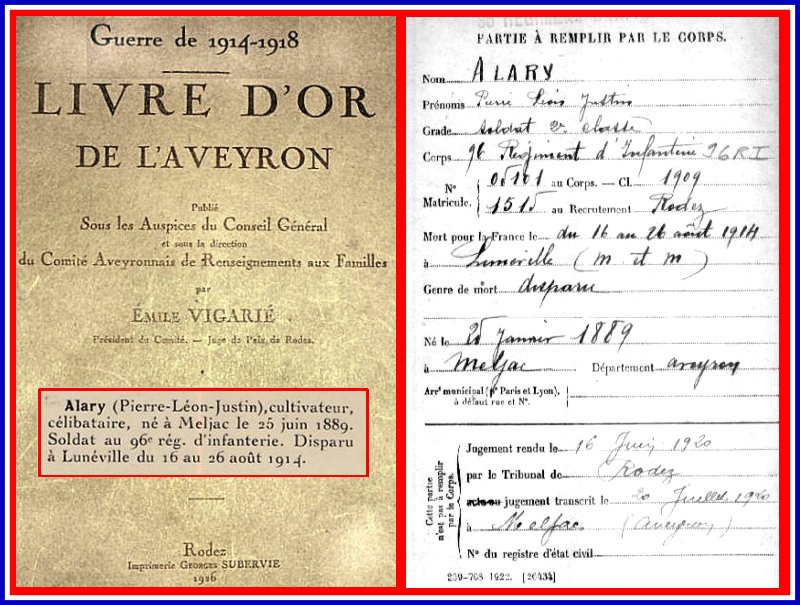 Guerre de 1914-1918
LIVRE D'OR
DE L'AVEYRON
Publié
Sous les Auspices du Conseil Général
et sous la direction
du Comité Aveyronnais de Renseignements aux Familles
par
ÉMILE VIGARIÉ
Président du Comité. — Juge de Paix de Rodez.
Alary (Pierre-Léon-Justin), cultivateur,
célibataire, né à Meljac le 25 juin 1889.
Soldat au 96e rég. d'infanterie. Disparu
à Lunéville du 16 au 26 août 1914.
Rodez
Imprimerie GEORGES SUBERVIE
1926
PARTIE À REMPLIR PAR LE CORPS.
Nom ALARY
Prénoms Pierre Justin
Grade soldat 2e classe
Corps 96 Régiment d'Infanterie 96 RI
N° Matricule. 05101 au Corps. — Cl. 1909
1515 au Recrutement Rodez
Mort pour la France le du 16 au 26 août 1914
à Luneville (M et M)
Genre de mort disparu
Né le 25 Janvier 1889
à Meljac Département Aveyron
Arrt municipal (pr Paris et Lyon),
à défaut rue et N°.
Cette partie n'est pas à remplir par le Corps.
Jugement rendu le 16 Juin 1920
par le Tribunal de Rodez
jugement transcrit le 20 Juillet 1920
à Meljac (Aveyron)
N° du registre d'état civil
239-708 1922. [26434]